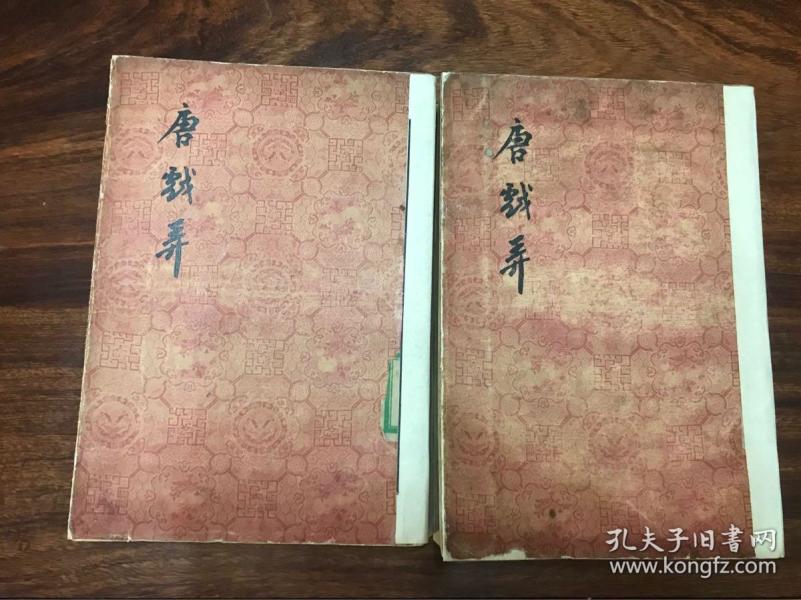 唐戯弄
唐戯弄
孔夫子旧書网
www.kongfz.com